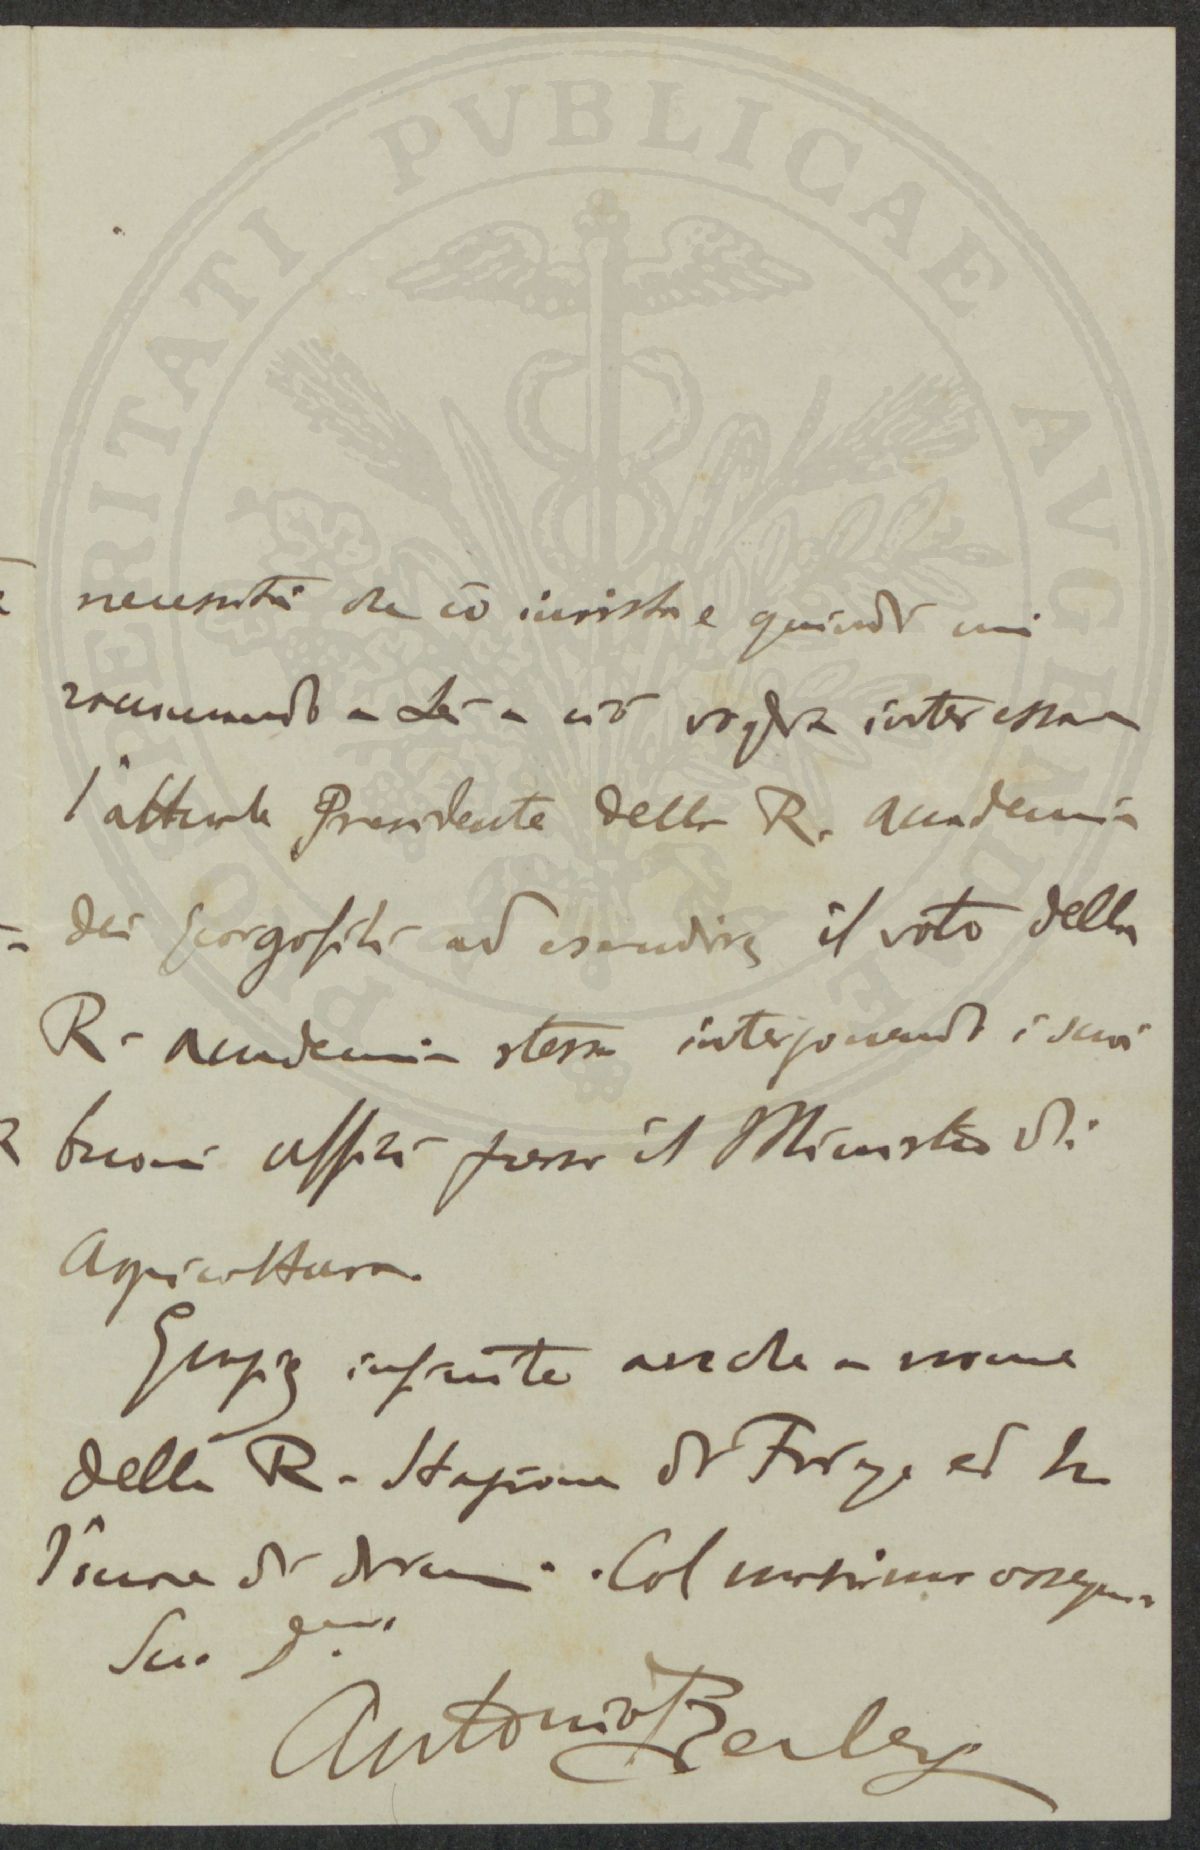 PROSPERITATI PVBLICAE AVGENDAE
necessità che io insista e quindi mi
raccomando a Lei a ciò voglia interessare
l'attuale Presidente della R. Accademia
dei Georgofili ad esaudire il voto della
R. Accademia stessa interponendo i suoi
buoni uffizi presso il Ministro di
Agricoltura.
Grazie infinite anche a nome
della R. Stazione di
l'onore di dirmi. Col massimo ossequio
Suo Dev.mo
Antonio Berlese